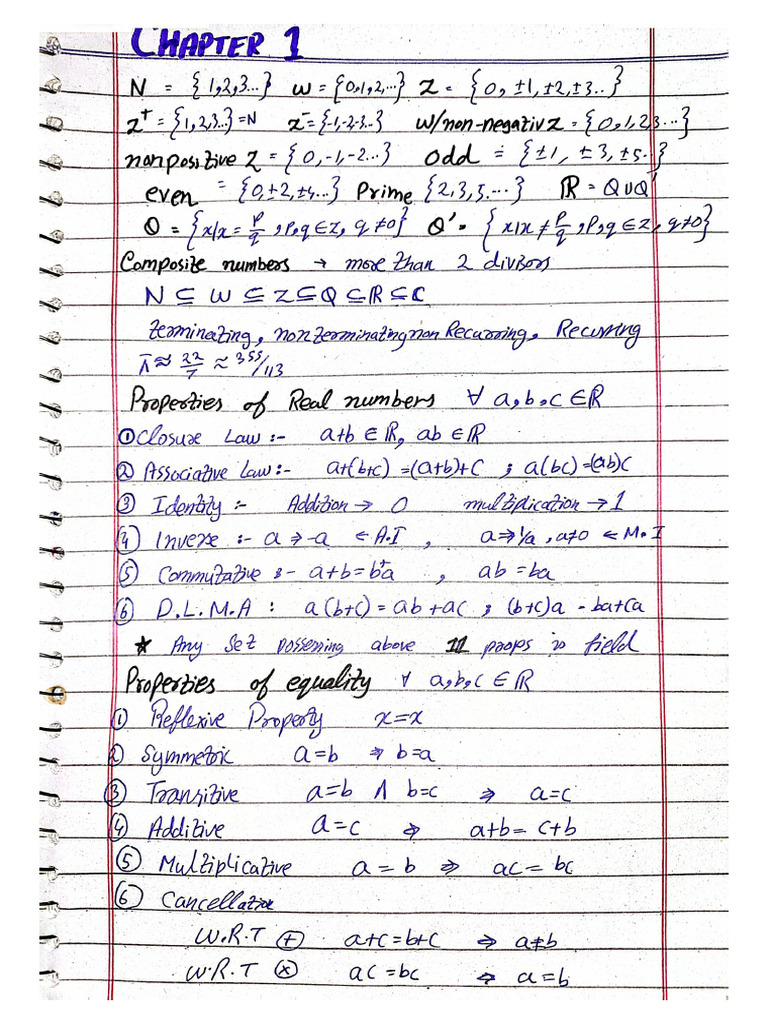 CHAPTER 1
N = {1,2,3...} W = {0,1,2,...} Z = {0, ±1, ±2, ±3..}
Z⁺ = {1,2,3...} = N Z⁻ = {-1,-2-3..} W/non-negativ Z = {0,1,2,3...}
nonpositive Z = {0,-1,-2...} odd = {±1, ±3, ±5..}
even = {0,±2,±4...} Prime {2,3,5....} ℝ = Q∪Q'
Q = {x/x = p/q , p,q ∈ Z, q ≠0} Q' = {x/x ≠ p/q , p,q ∈ Z, q≠0}
Composite numbers → more than 2 divisors
N ⊆ W ⊆ Z ⊆ Q ⊆ ℝ ⊆ ℂ
terminating, nonterminating non Recurring, Recurring
π ≈ 22/7 ≈ 355/113
Properties of Real numbers ∀ a,b,c ∈ ℝ
① Closure Law :- a+b ∈ ℝ, ab ∈ ℝ
② Associative Law :- a+(b+c) =(a+b)+c ; a(bc) =(ab)c
③ Identity :- Addition → 0 multiplication → 1
④ Inverse :- a → -a ← A.I , a ⇒ 1/a , a≠0 ← M.I
⑤ Commutative :- a+b = b+a , ab = ba
⑥ D.L.M.A : a(b+c) = ab +ac ; (b+c)a = ba+ca
★ Any set possening above 11 props is field
Properties of equality ∀ a,b,c ∈ ℝ
① Reflexive Property x=x
② Symmetric a=b ⇒ b=a
③ Transitive a=b ∧ b=c ⇒ a=c
④ Additive a=c ⇒ a+b = c+b
⑤ Multiplicative a = b ⇒ ac = bc
⑥ Cancellation
W.R.T ⊕ a+c = b+c ⇒ a=b
W.R.T ⊗ ac = bc ⇒ a = b